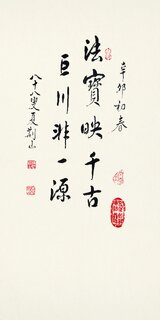 辛卯初春
法寶映千古
巨川非一源
八十八叟夏荊山